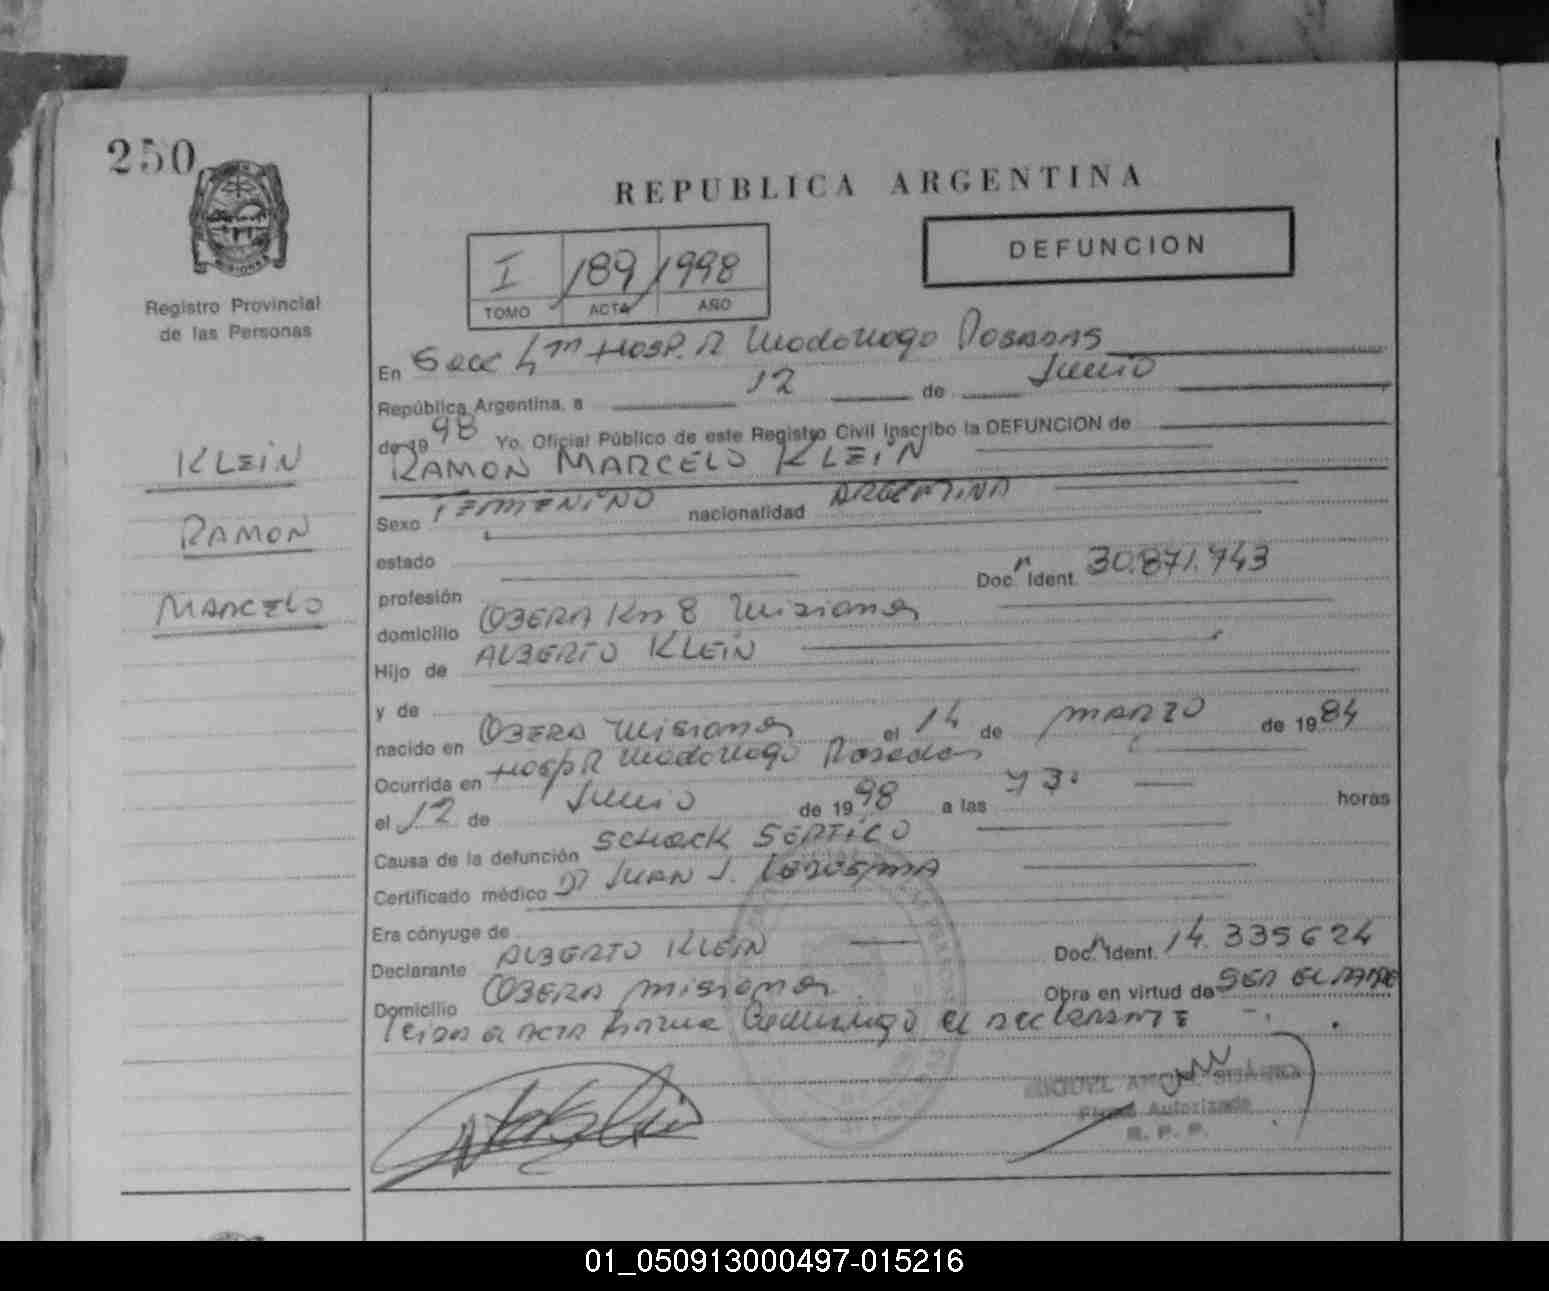 250
MISIONES
Registro Provincial
de las Personas
REPUBLICA ARGENTINA
DEFUNCION
I 189 1998
TOMO ACTA AÑO
KLEIN
RAMON
MARCELO
En Secc 4ta HOSP. R Madariaga Posadas
República Argentina, a 12 de Junio
de 19 98 Yo, Oficial Público de este Registro Civil inscribo la DEFUNCION de
RAMON MARCELO KLEIN
Sexo FEMENINO nacionalidad ARGENTINA
estado
profesión Doc. Ident. 30.871.743
domicilio OBERA Km 8 Misiones
Hijo de ALBERTO KLEIN
y de
nacido en OBERA Misiones el 14 de MARZO de 19 84
Ocurrida en HOSP R Madariaga Posadas
el 12 de Junio de 19 98 a las horas
Causa de la defunción SCHOCK SEPTICO
Certificado médico Dr JUAN J. LEDESMA
Era cónyuge de
Declarante ALBERTO KLEIN Doc. Ident. 14.335624
Domicilio OBERA MISIONES Obra en virtud de SER EL PADRE
Leida el ACTA firma el DECLARANTE
MIGUEL
Firma Autorizada
R. P. P.
01_050913000497-015216